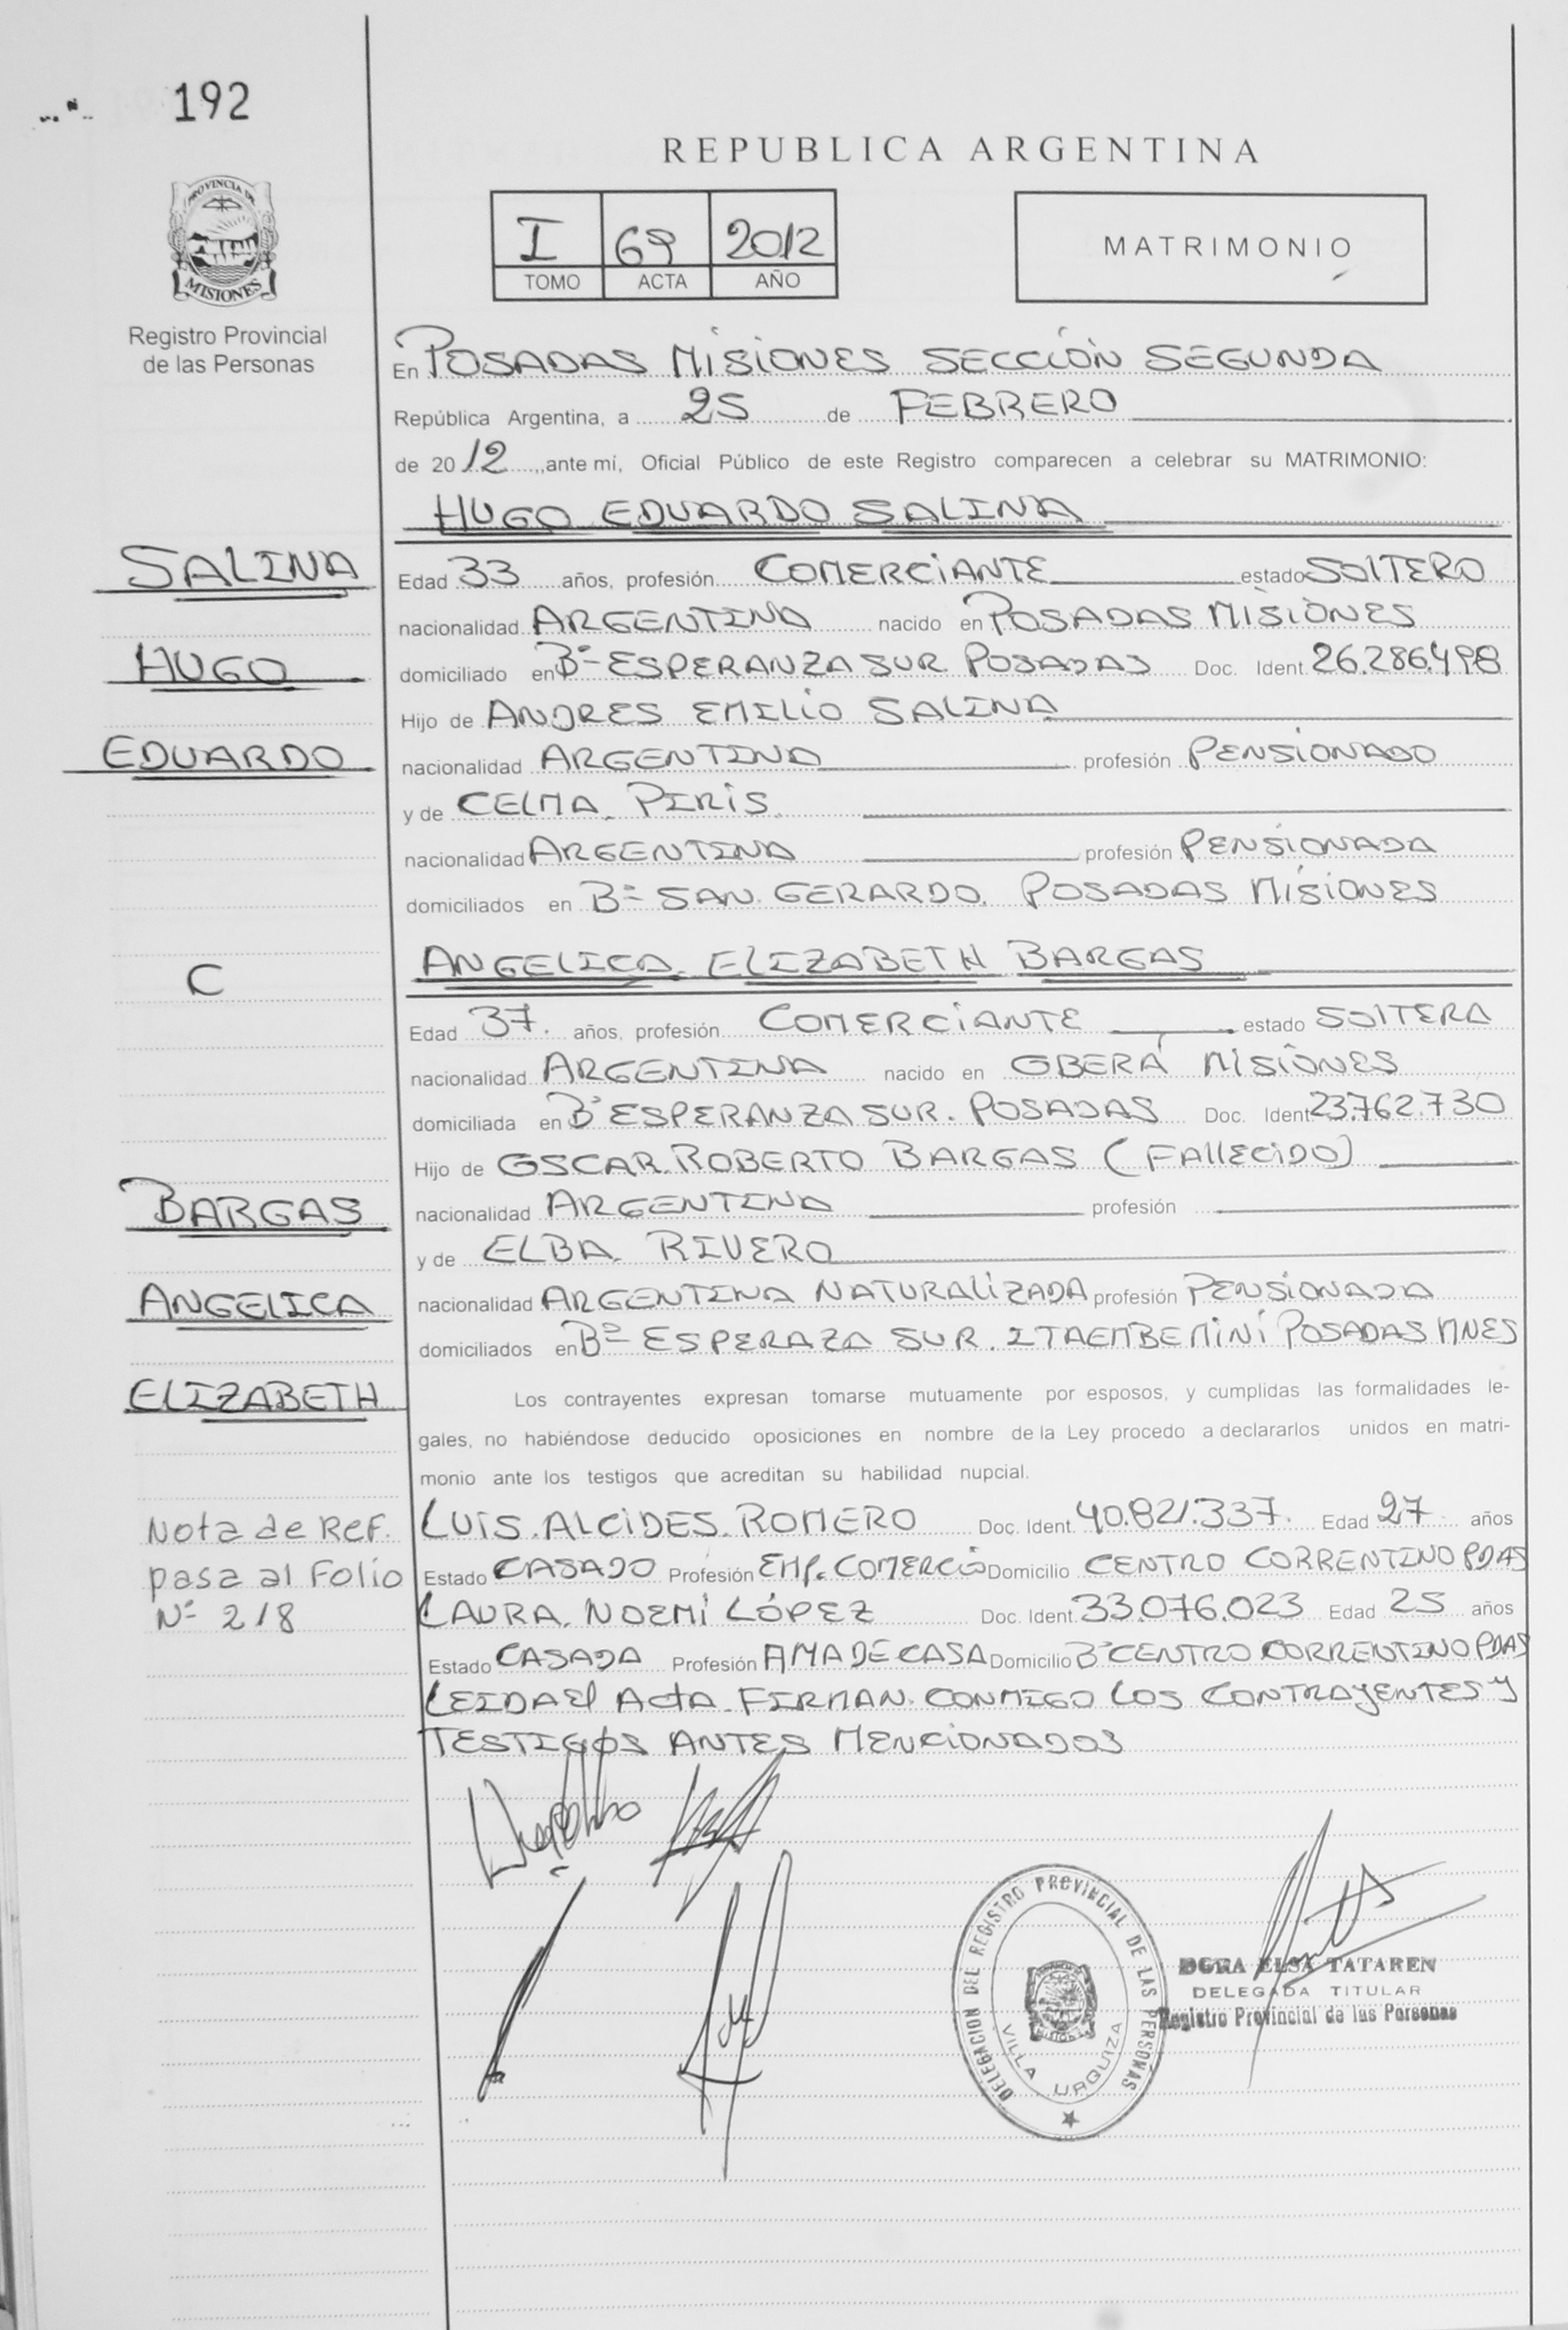 192
PROVINCIA DE
MISIONES
Registro Provincial
de las Personas
REPUBLICA ARGENTINA
I 69 2012
TOMO ACTA AÑO
MATRIMONIO
En POSADAS MISIONES SECCIÓN SEGUNDA
República Argentina, a 25 de FEBRERO
de 2012, ante mí, Oficial Público de este Registro comparecen a celebrar su MATRIMONIO:
HUGO EDUARDO SALINA
SALINA
Edad 33 años, profesión COMERCIANTE estado SOLTERO
nacionalidad ARGENTINA nacido en POSADAS MISIONES
HUGO
domiciliado en Bº ESPERANZA SUR POSADAS Doc. Ident. 26.286.498
Hijo de ANDRES EMILIO SALINA
EDUARDO
nacionalidad ARGENTINA profesión PENSIONADO
y de CELMA PIRIS
nacionalidad ARGENTINA profesión PENSIONADA
domiciliados en Bº SAN GERARDO. POSADAS MISIONES
C
ANGELICA ELIZABETH BARGAS
Edad 37. años, profesión COMERCIANTE estado SOLTERA
nacionalidad ARGENTINA nacido en OBERÁ MISIONES
domiciliada en Bº ESPERANZA SUR. POSADAS Doc. Ident 23.762.730
Hijo de OSCAR ROBERTO BARGAS (FALLECIDO)
BARGAS
nacionalidad ARGENTINA profesión
y de ELBA RIVERO
ANGELICA
nacionalidad ARGENTINA NATURALIZADA profesión PENSIONADA
domiciliados en Bº ESPERAZA SUR. ITAEMBE MINI POSADAS MNES
ELIZABETH
Los contrayentes expresan tomarse mutuamente por esposos, y cumplidas las formalidades le-
gales, no habiéndose deducido oposiciones en nombre de la Ley procedo a declararlos unidos en matri-
monio ante los testigos que acreditan su habilidad nupcial.
Nota de Ref.
pasa al Folio
Nº 218
LUIS ALCIDES ROMERO Doc. Ident. 40.821.337. Edad 27 años
Estado CASADO Profesión EMP. COMERCIO Domicilio CENTRO CORRENTINO PDAS
LAURA NOEMI LÓPEZ Doc. Ident. 33.076.023 Edad 25 años
Estado CASADA Profesión AMA DE CASA Domicilio Bº CENTRO CORRENTINO PDAS
LEIDA El ActA FIRMAN CONMIGO LOS CONTRAYENTES Y
TESTIGOS ANTES MENCIONADOS
DELEGACION DEL REGISTRO PROVINCIAL DE LAS PERSONAS
MISIONES
VILLA URQUIZA
DGRA ELSA TATAREN
DELEGADA TITULAR
Registro Provincial de las Personas